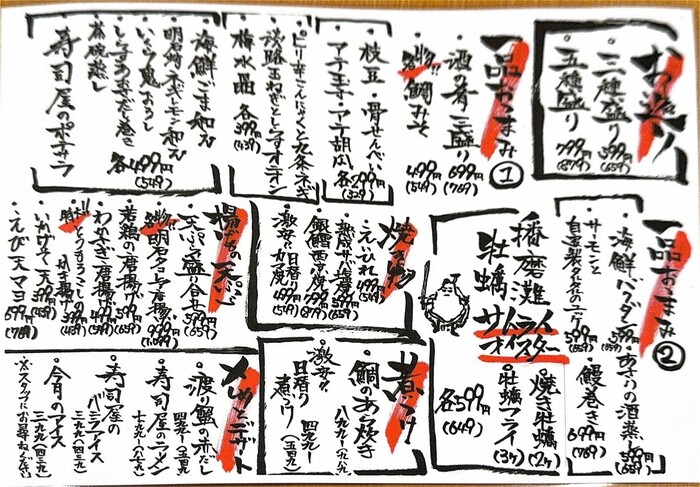 お造り
・三種盛り 599円(659)
・五種盛り 799円(879)
一品おつまみ①
・酒の肴三盛り 699円(769)
名物!!鯛みそ 499円(549)
・枝豆・骨せんべい
・アテ玉子・アテ胡瓜
各299円(329)
・ピリ辛こんにゃくと九条ネギ
・淡路玉ねぎとしらすオニオン
・梅水晶 各399円(439)
・海鮮ごま和え
・明石鯛ネギレモン和え
・いくら鬼おろし
・しらすあおさだし巻き
・茶碗蒸し
・寿司屋のポテサラ
各499円(549)
一品おつまみ②
・海鮮バクダン 599円(659)
・サーモンと
自家製タルタルのユッケ 599円(659)
・あさりの酒蒸し 599円(659)
・鰻巻き 699円(769)
播磨灘
牡蠣
サムライ
オイスター
・焼き牡蠣(2ケ)
・牡蠣フライ(3ケ)
各599円(649)
焼き物
・えいひれ 499円(549)
・熟成サバ塩焼 599円(659)
・銀鱈西京焼 799円(879)
・激安!!日替り
カマ焼 499円(549)
揚げもの天ぷら
・天ぷら盛り合せ 599円(659)
名物!!明石タコ唐揚 999円(1,099)
・若鶏の唐揚げ 599円(659)
・わかさぎ唐揚 399円(439)
・とうもろこしの
かき揚 399円(439)
・いかげそ天 399円(439)
・えび天マヨ 699円(769)
煮つけ
・鯛のあら炊き
八九九(九八九)
・激安!!日替り
煮つけ
四九九(五四九)
〆とデザート
・渡り蟹の赤だし
四九九(五四九)
・寿司屋のラーメン
七九九(八七九)
・寿司屋の
バニラアイス
三九九(四三九)
・今月のアイス
三九九(四三九)
※スタッフにお尋ね下さい